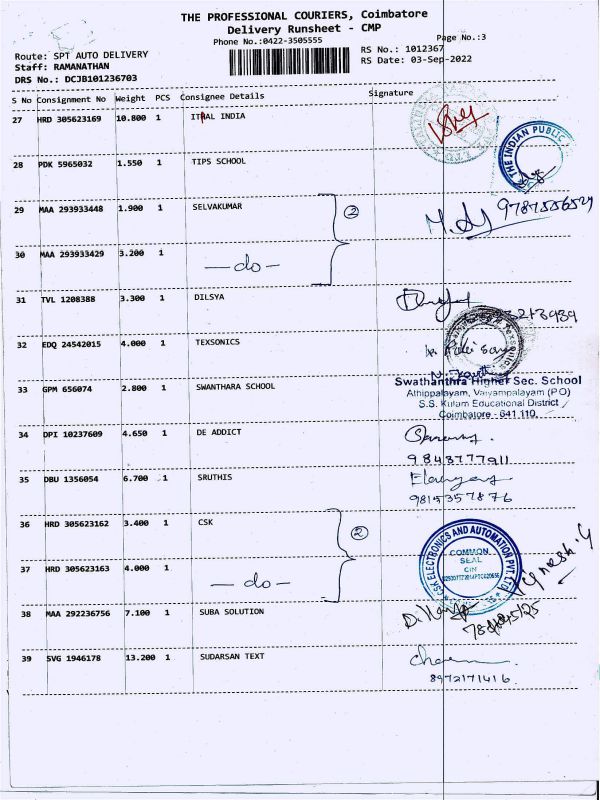 THE PROFESSIONAL COURIERS, Coimbatore
Delivery Runsheet - CMP
Phone No.:0422-3505555
Page No.:3
Route: SPT AUTO DELIVERY
RS No.: 1012367
Staff: RAMANATHAN
RS Date: 03-Sep-2022
DRS No.: DCJB101236703
S No Consignment No Weight PCS Consignee Details Signature
27 HRD 305623169 10.800 1 ITRAL INDIA
THE INDIAN PUBLIC
28 PDK 5965032 1.550 1 TIPS SCHOOL
29 MAA 293933448 1.900 1 SELVAKUMAR
2
30 MAA 293933429 3.200 1
— do —
31 TVL 1208388 3.300 1 DILSYA
32 EDQ 24542015 4.000 1 TEXSONICS
33 GPM 656074 2.800 1 SWANTHARA SCHOOL
Swathanthra Higher Sec. School
Athippalayam, Vaiyampalayam (P.O)
S.S. Kulam Educational District
Coimbatore - 641 110.
34 DPI 10237609 4.650 1 DE ADDICT
35 DBU 1356054 6.700 1 SRUTHIS
9815357876
36 HRD 305623162 3.400 1 CSK
2
CSK ELECTRONICS AND AUTOMATION PVT. LTD
COMMON
SEAL
CIN
37 HRD 305623163 4.000 1
— do —
38 MAA 292236756 7.100 1 SUBA SOLUTION
39 SVG 1946178 13.200 1 SUDARSAN TEXT
8972171416